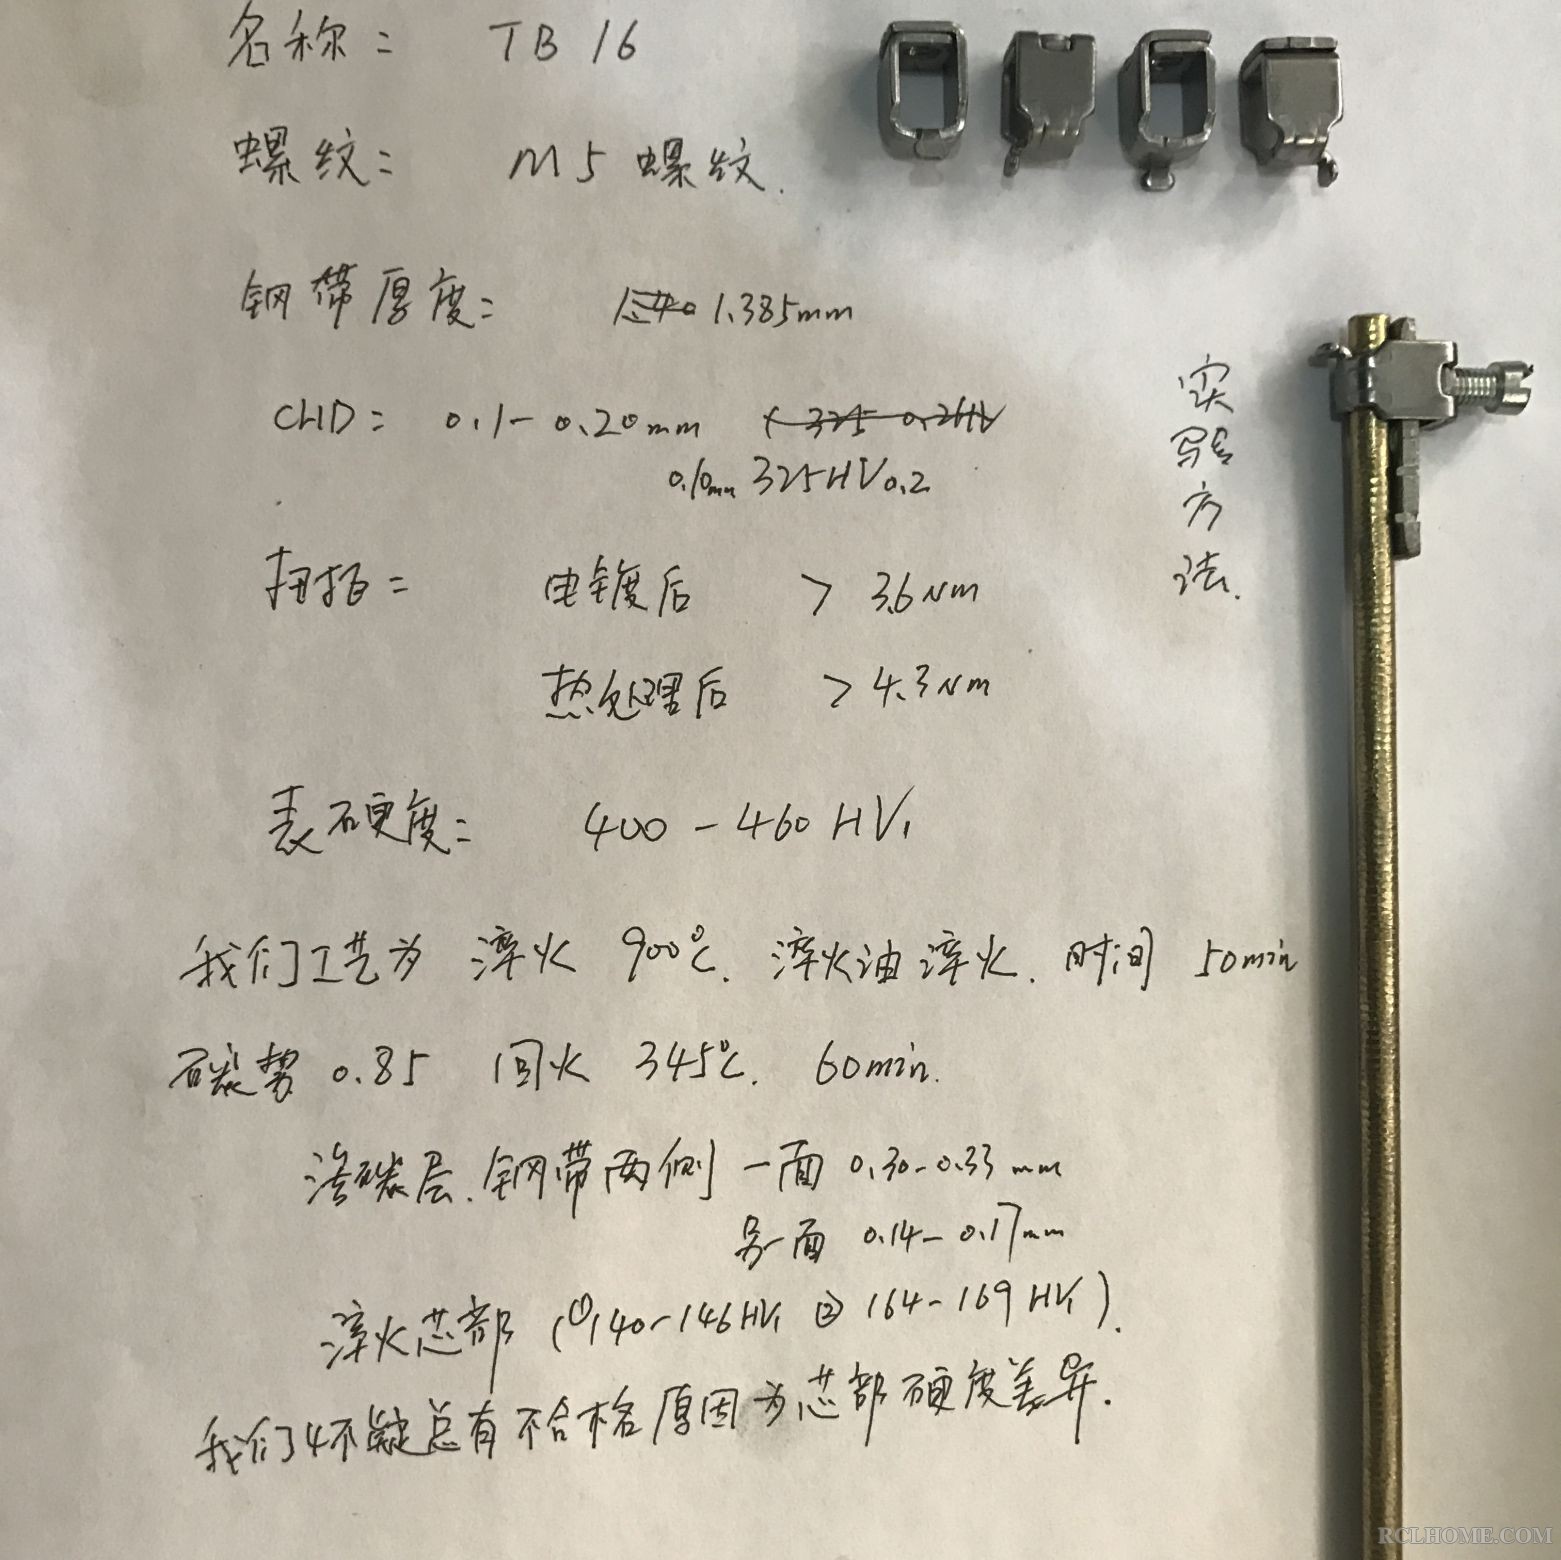 名称: TB 16
螺纹: M5 螺纹.
钢带厚度: 1.385mm
CHD: 0.1-0.20mm
0.10mm 325HV0.2
实验方法.
扭拒= 电镀后 > 3.6Nm
热处理后 > 4.3Nm
表硬度: 400-460 HV1
我们工艺为 淬火 900℃. 淬火油淬火. 时间 50min
碳势 0.85 回火 345℃. 60min.
渗碳层. 钢带两侧 一面 0.30-0.33mm
另一面 0.14-0.17mm
淬火芯部 (①140-146HV1 ②164-169HV1).
我们怀疑总有不合格原因为芯部硬度差异.
RCLHOME.COM